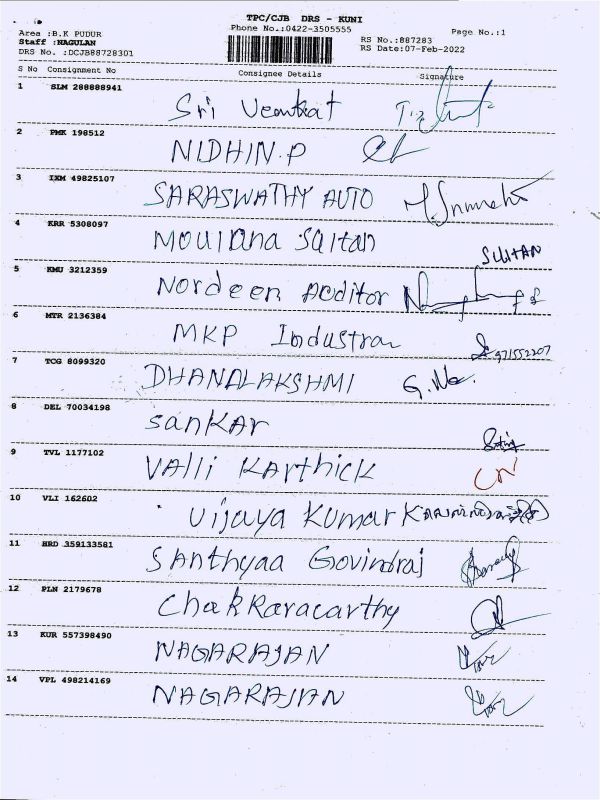 TPC/CJB DRS - KUNI
Phone No.:0422-3505555
Page No.:1
Area :B.K PUDUR
Staff :NAGULAN
DRS No. :DCJB88728301
RS No.:887283
RS Date:07-Feb-2022
S No Consignment No Consignee Details Signature
1 SLM 288888941
Sri Venkat
2 PMK 198512
NIDHIN.P
3 IXM 49825107
SARASWATHY AUTO
4 KRR 5308097
Moulana Saltan SULTAN
5 KMU 3212359
Nordeen Aeditor
6 MTR 2136384
MKP Industran
7 TCG 8099320
DHANALAKSHMI
8 DEL 70034198
SanKAr
9 TVL 1177102
VAlli KArthick
10 VLI 162602
Vijaya Kumar
11 HRD 359133581
SAnthyaa Govindraj
12 PLN 2179678
ChakRaracarthy
13 KUR 557398490
NAGARAJAN
14 VPL 498214169
NAGARAJAN